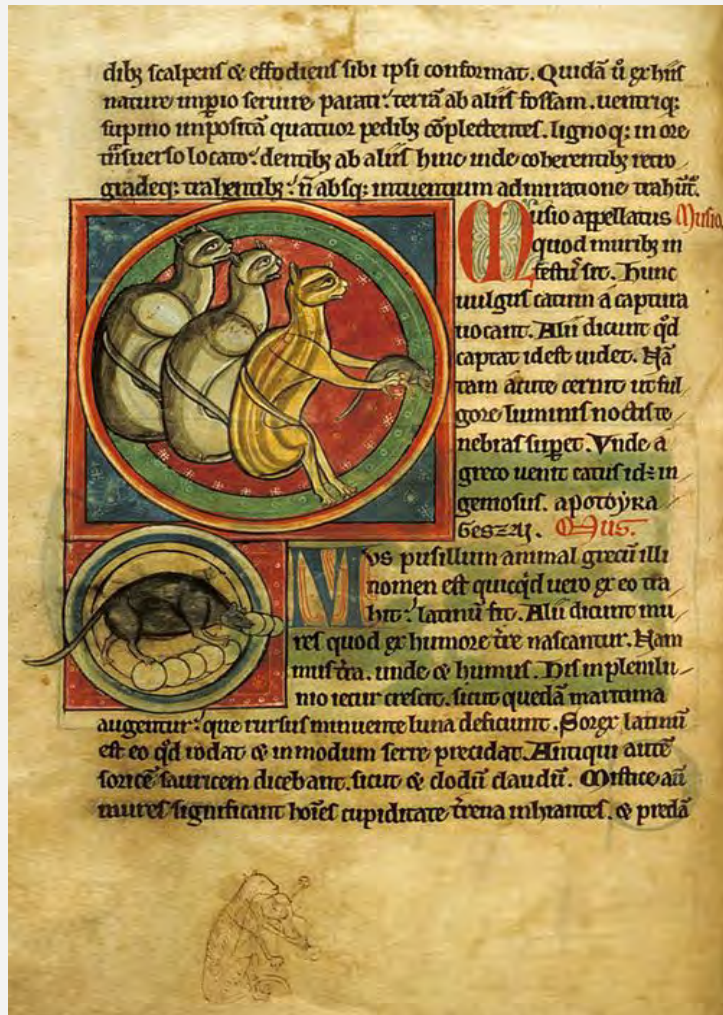 dibꝫ scalpens & effodiens sibi ipsi conformat. Quidā ů ex hiis
nature impio seruire parati. terrā ab aliis fossam. uentriqꝫ
supino impositā quatuor pedibꝫ cōplectentes. lignoqꝫ in ore
tͣnsuerso locato. dentibꝫ ab aliis hinc inde coherentibꝫ retro
gradeqꝫ trahentibꝫ. n̄ absqꝫ intuentium admiratione trahūt.
Musio appellatus Musio,
quod muribꝫ in
festꝰ sit. Hunc
uulgus catum a captura
uocant. Alii dicunt qd
captat id est uidet. Nā
tam acute cernit ut ful
gore luminis noctis te
nebras supet. Vnde a
greco uenit catus id÷ in
geniosus. apotoyka
gesZaj. Mus.
Mvs pusillum animal grecū illi
nomen est quicqd uero ex eo tra
hit. latinū fit. Alii dicunt mu
res quod ex humore tre nascantur. Nam
mus tra. unde & humus. His in plenilu
nio iecur crescit. sicut quedā maritima
augentur. que rursus minuente luna deficiunt. Sorex latinū
est eo qd rodat & in modum serre precidat. Antiqui autē
soricē sauricem dicebant. sicut & clodū claudū. Mistice aū
mures significant hoīes cupiditate trena inhiantes. & predā